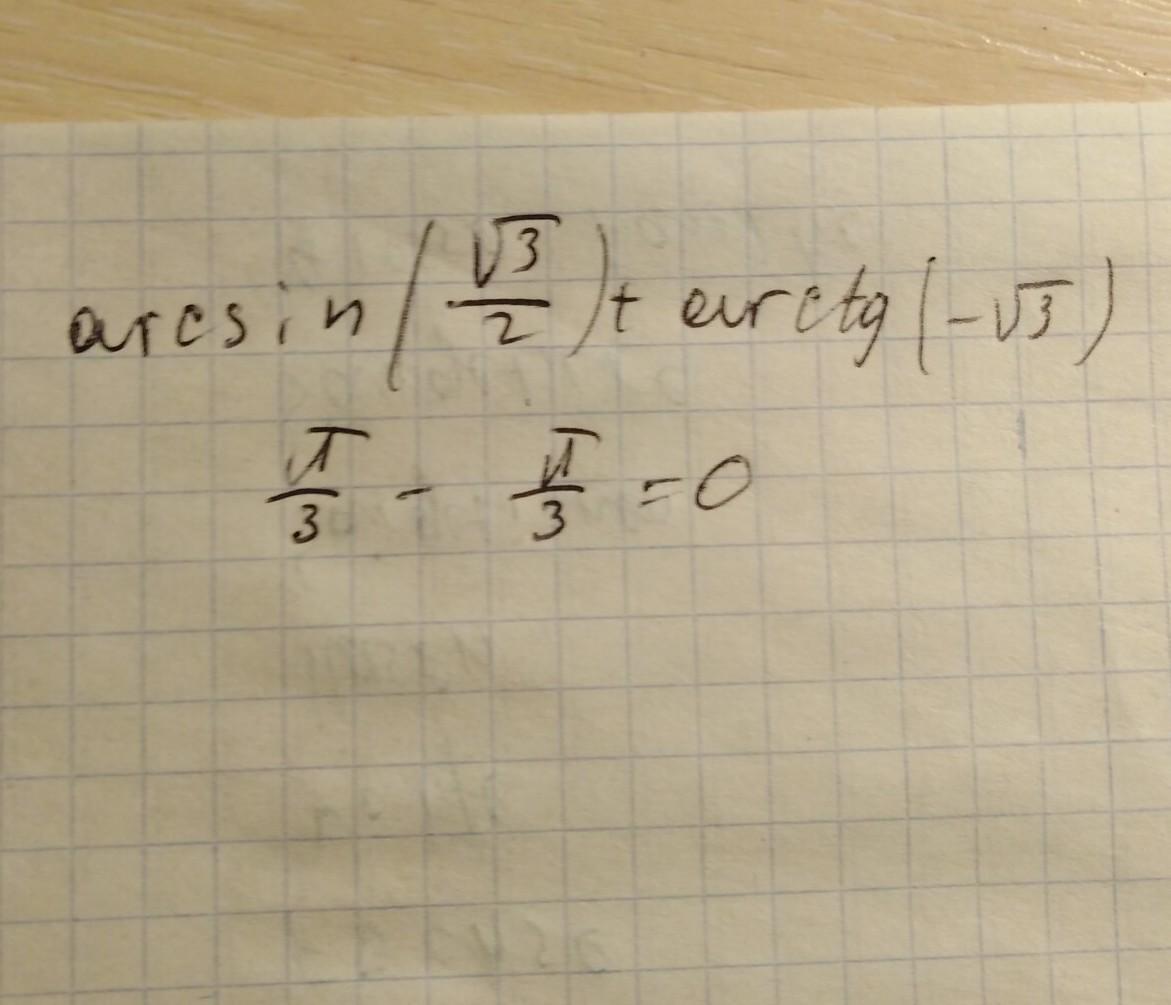 arcsin(√3/2) + arctg(-√3)
π/3 - π/3 = 0